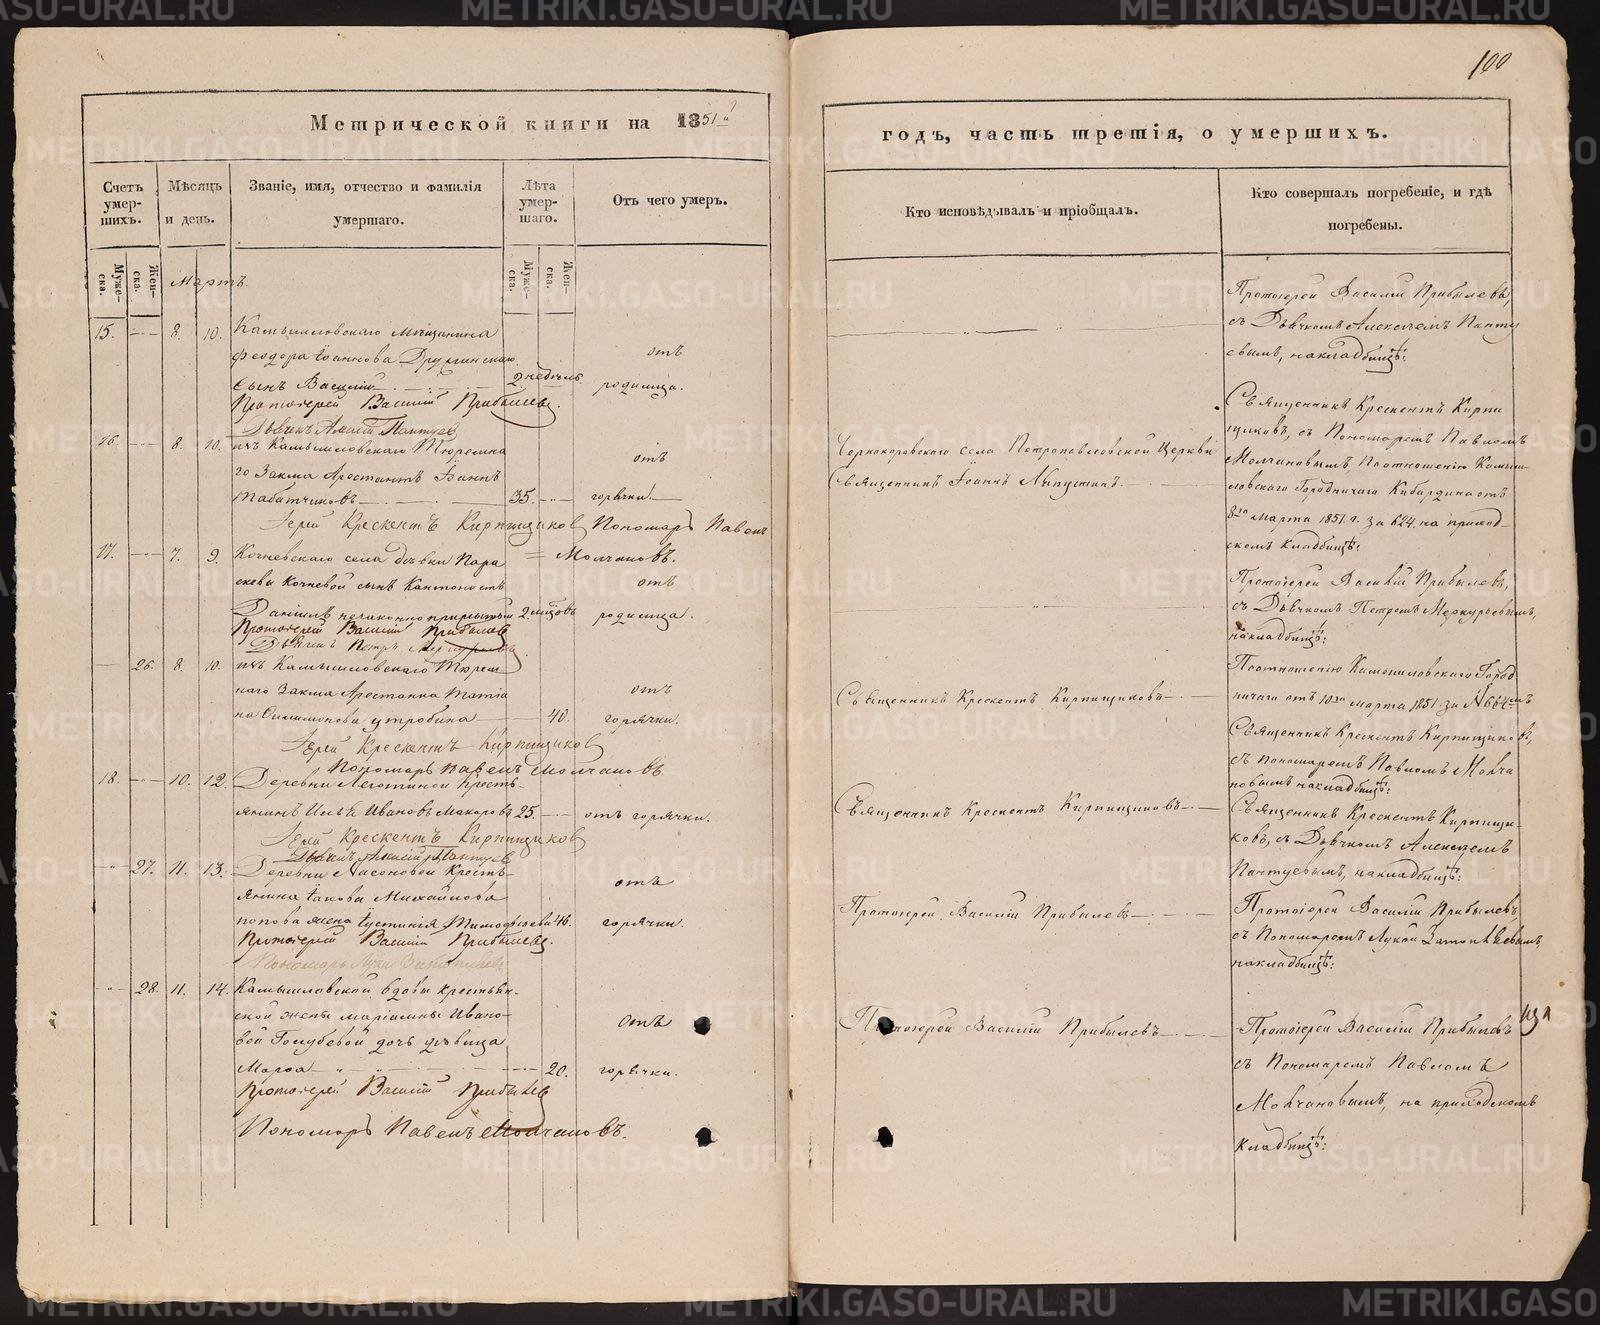 100
Метрической книги на 1851й
годъ, часть третія, о умершихъ.
Счетъ умер-шихъ.
Мѣсяцъ и день.
Званіе, имя, отчество и фамилія умершаго.
Лѣта умер-шаго.
Отъ чего умеръ.
Кто исповѣдывалъ и пріобщалъ.
Кто совершалъ погребеніе, и гдѣ погребены.
Муже-ска.
Жен-ска.
Муже-ска.
Жен-ска.
Мартъ.
15. 8. 10. Камышловскаго мѣщанина
Феодора Іоаннова
сынъ Василій 2 недѣль
отъ
родимца.
Протоіерей Василій Прибылевъ
Дьячекъ Алексѣй Пантуев
Протоіерей Василій Прибылевъ,
съ Дьячкомъ Алексѣемъ Панту
евымъ, на кладбищѣ:
16. 8. 10. изъ Камышловскаго Тюремна
го Замка Арестантъ Іоаннъ
Табатчиковъ 35.
отъ
горячки.
Іерей Крескентъ Кирпищиков Пономарь Павелъ
Молчановъ.
Черноковскаго села Петропавловской Церкви
Священникъ Іоаннъ
Священникъ Крескентъ Кирпи
щиковъ, съ Пономаремъ Павломъ
Молчановымъ По отношенію Камыш
ловскаго Городничаго Кабардина отъ
8го марта 1851. г. за 624. на приход-
скомъ кладбищѣ:
17. 7. 9. Кочневскаго села дѣвки Пара
скевы Кочневой сынъ Кантонистъ
Даніилъ незаконно прижитый 2 мѣсяцовъ
отъ
родимца.
Протоіерей Василій Прибылев
Дьячекъ Петръ
Протоіерей Василій Прибылевъ,
съ Дьячкомъ Петромъ Меркурьевымъ,
на кладбищѣ:
26. 8. 10. изъ Камышловскаго Тюрем
наго Замка Арестантка Татіа
на 40.
отъ
горячки.
Іерей Крескентъ Кирпищиков
Пономарь Павелъ Молчановъ
Священникъ Крескентъ Кирпищиковъ
По отношенію Камышловскаго Город
ничаго отъ 10го марта 1851. за № 664мъ
Священникъ Крескентъ Кирпищиковъ,
съ Пономаремъ Павломъ Молча
новымъ на кладбищѣ:
18. 10. 12. Деревни Леготиной кресть-
янинъ Илья Ивановъ Макаровъ 25. отъ горячки.
Іерей Крескентъ Кирпищиков
Дьячекъ Алексій Пантуев
Священникъ Крескентъ Кирпищиковъ
Священникъ Крескентъ Кирпищи-
ковъ, съ Дьячкомъ Алексѣемъ
Пантуевымъ, на кладбищѣ:
27. 11. 13. Деревни Насоновой Кресть-
янина Іакова Михайлова
попова жена Іустинія Тимофѣева 46.
отъ
горячки.
Протоіерей Василій Прибылев
Пономарь Лука
Протоіерей Василій Прибылевъ
Протоіерей Василій Прибылевъ,
съ Пономаремъ Лукой
на кладбищѣ:
28. 11. 14. Камышловской вдовы крестьян-
ской жены Маріамны Ивано-
вой Голубевой дочь дѣвица
Марѳа 20.
отъ
горячки.
Протоіерей Василій Прибылев
Пономарь Павелъ Молчановъ.
Протоіерей Василій Прибылевъ
Протоіерей Василій Прибылевъ
съ Пономаремъ Павломъ
Молчановымъ, на приходскомъ
кладбищѣ:
METRIKI.GASO-URAL.RU